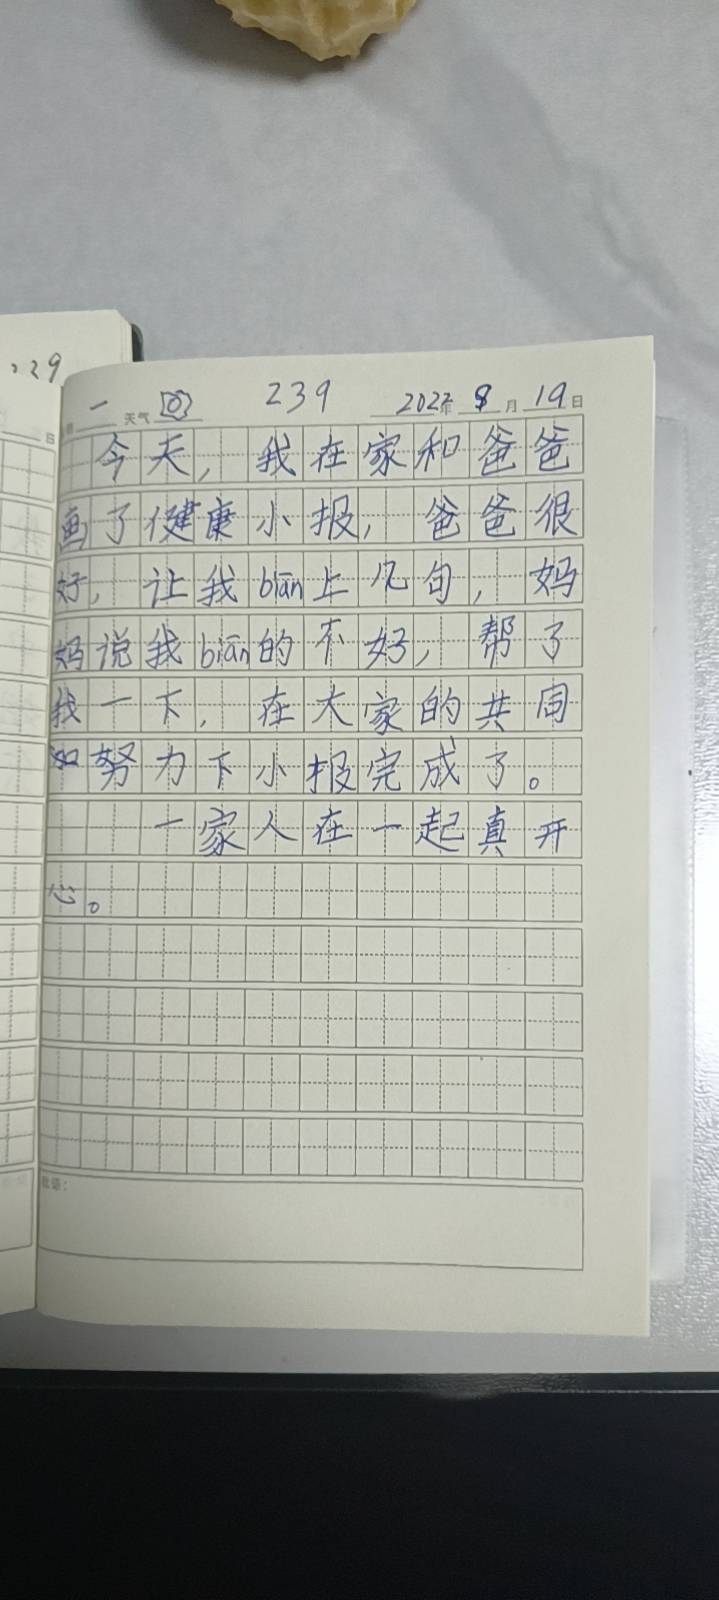 229
一 天气 239 2022年 8月19日
今天，我在家和爸爸
画了健康小报，爸爸很
好，让我biān上几句，妈
妈说我biān的不好，帮了
我一下，在大家的共同
努力下小报完成了。
一家人在一起真开
心。
批语：